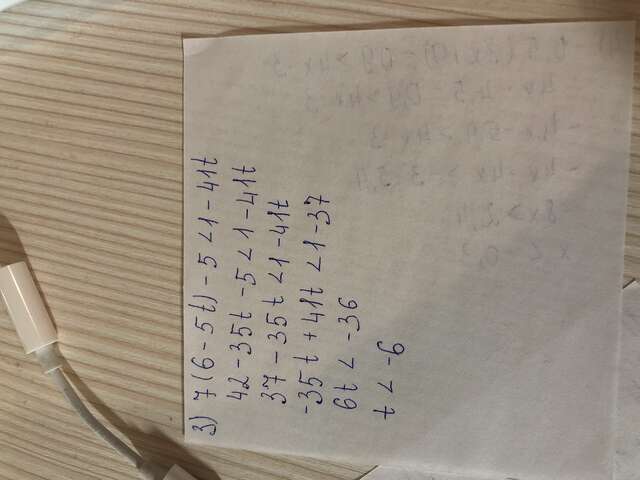 3) 7(6 - 5t) - 5 < 1 - 41t
42 - 35t - 5 < 1 - 41t
37 - 35t < 1 - 41t
-35t + 41t < 1 - 37
6t < -36
t < -6